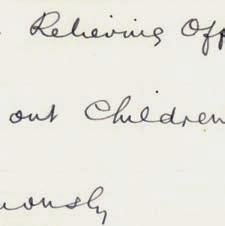 Relieving Off
out Children
ously